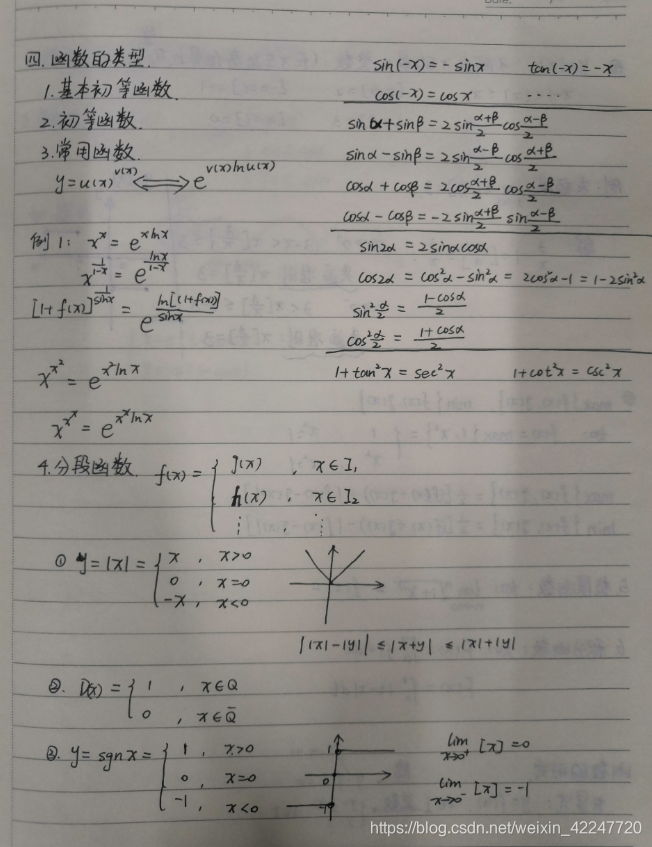 四.函数的类型.
1.基本初等函数.
2.初等函数.
3.常用函数.
y=u(x)^{v(x)} ⟺ e^{v(x)lnu(x)}
例1: x^x = e^{xlnx}
x^{\frac{1}{1-x}} = e^{\frac{lnx}{1-x}}
[1+f(x)]^{\frac{1}{sinx}} = e^{\frac{ln[1+f(x)]}{sinx}}
x^{x^2} = e^{x^2lnx}
x^{x^x} = e^{x^xlnx}
sin(-x)=-sinx tan(-x)=-x
cos(-x)=cosx ....
sinα+sinβ=2sin\frac{α+β}{2}cos\frac{α-β}{2}
sinα-sinβ=2sin\frac{α-β}{2}cos\frac{α+β}{2}
cosα+cosβ=2cos\frac{α+β}{2}cos\frac{α-β}{2}
cosα-cosβ=-2sin\frac{α+β}{2}sin\frac{α-β}{2}
sin2α=2sinαcosα
cos2α=cos²α-sin²α=2cos²α-1=1-2sin²α
sin²\frac{α}{2}=\frac{1-cosα}{2}
cos²\frac{α}{2}=\frac{1+cosα}{2}
1+tan²x=sec²x 1+cot²x=csc²x
4.分段函数. f(x)= { g(x) , x∈I₁
h(x) , x∈I₂
⋮ , ⋮
① y=|x|= { x , x>0
0 , x=0
-x , x<0
||x|-|y||≤|x+y|≤|x|+|y|
②. D(x)= { 1 , x∈Q
0 , x∈Q̄
③. y=sgnx= { 1 , x>0
0 , x=0
-1 , x<0
1
0
-1
lim_{x→0⁺}[x]=0
lim_{x→0⁻}[x]=-1
https://blog.csdn.net/weixin_42247720